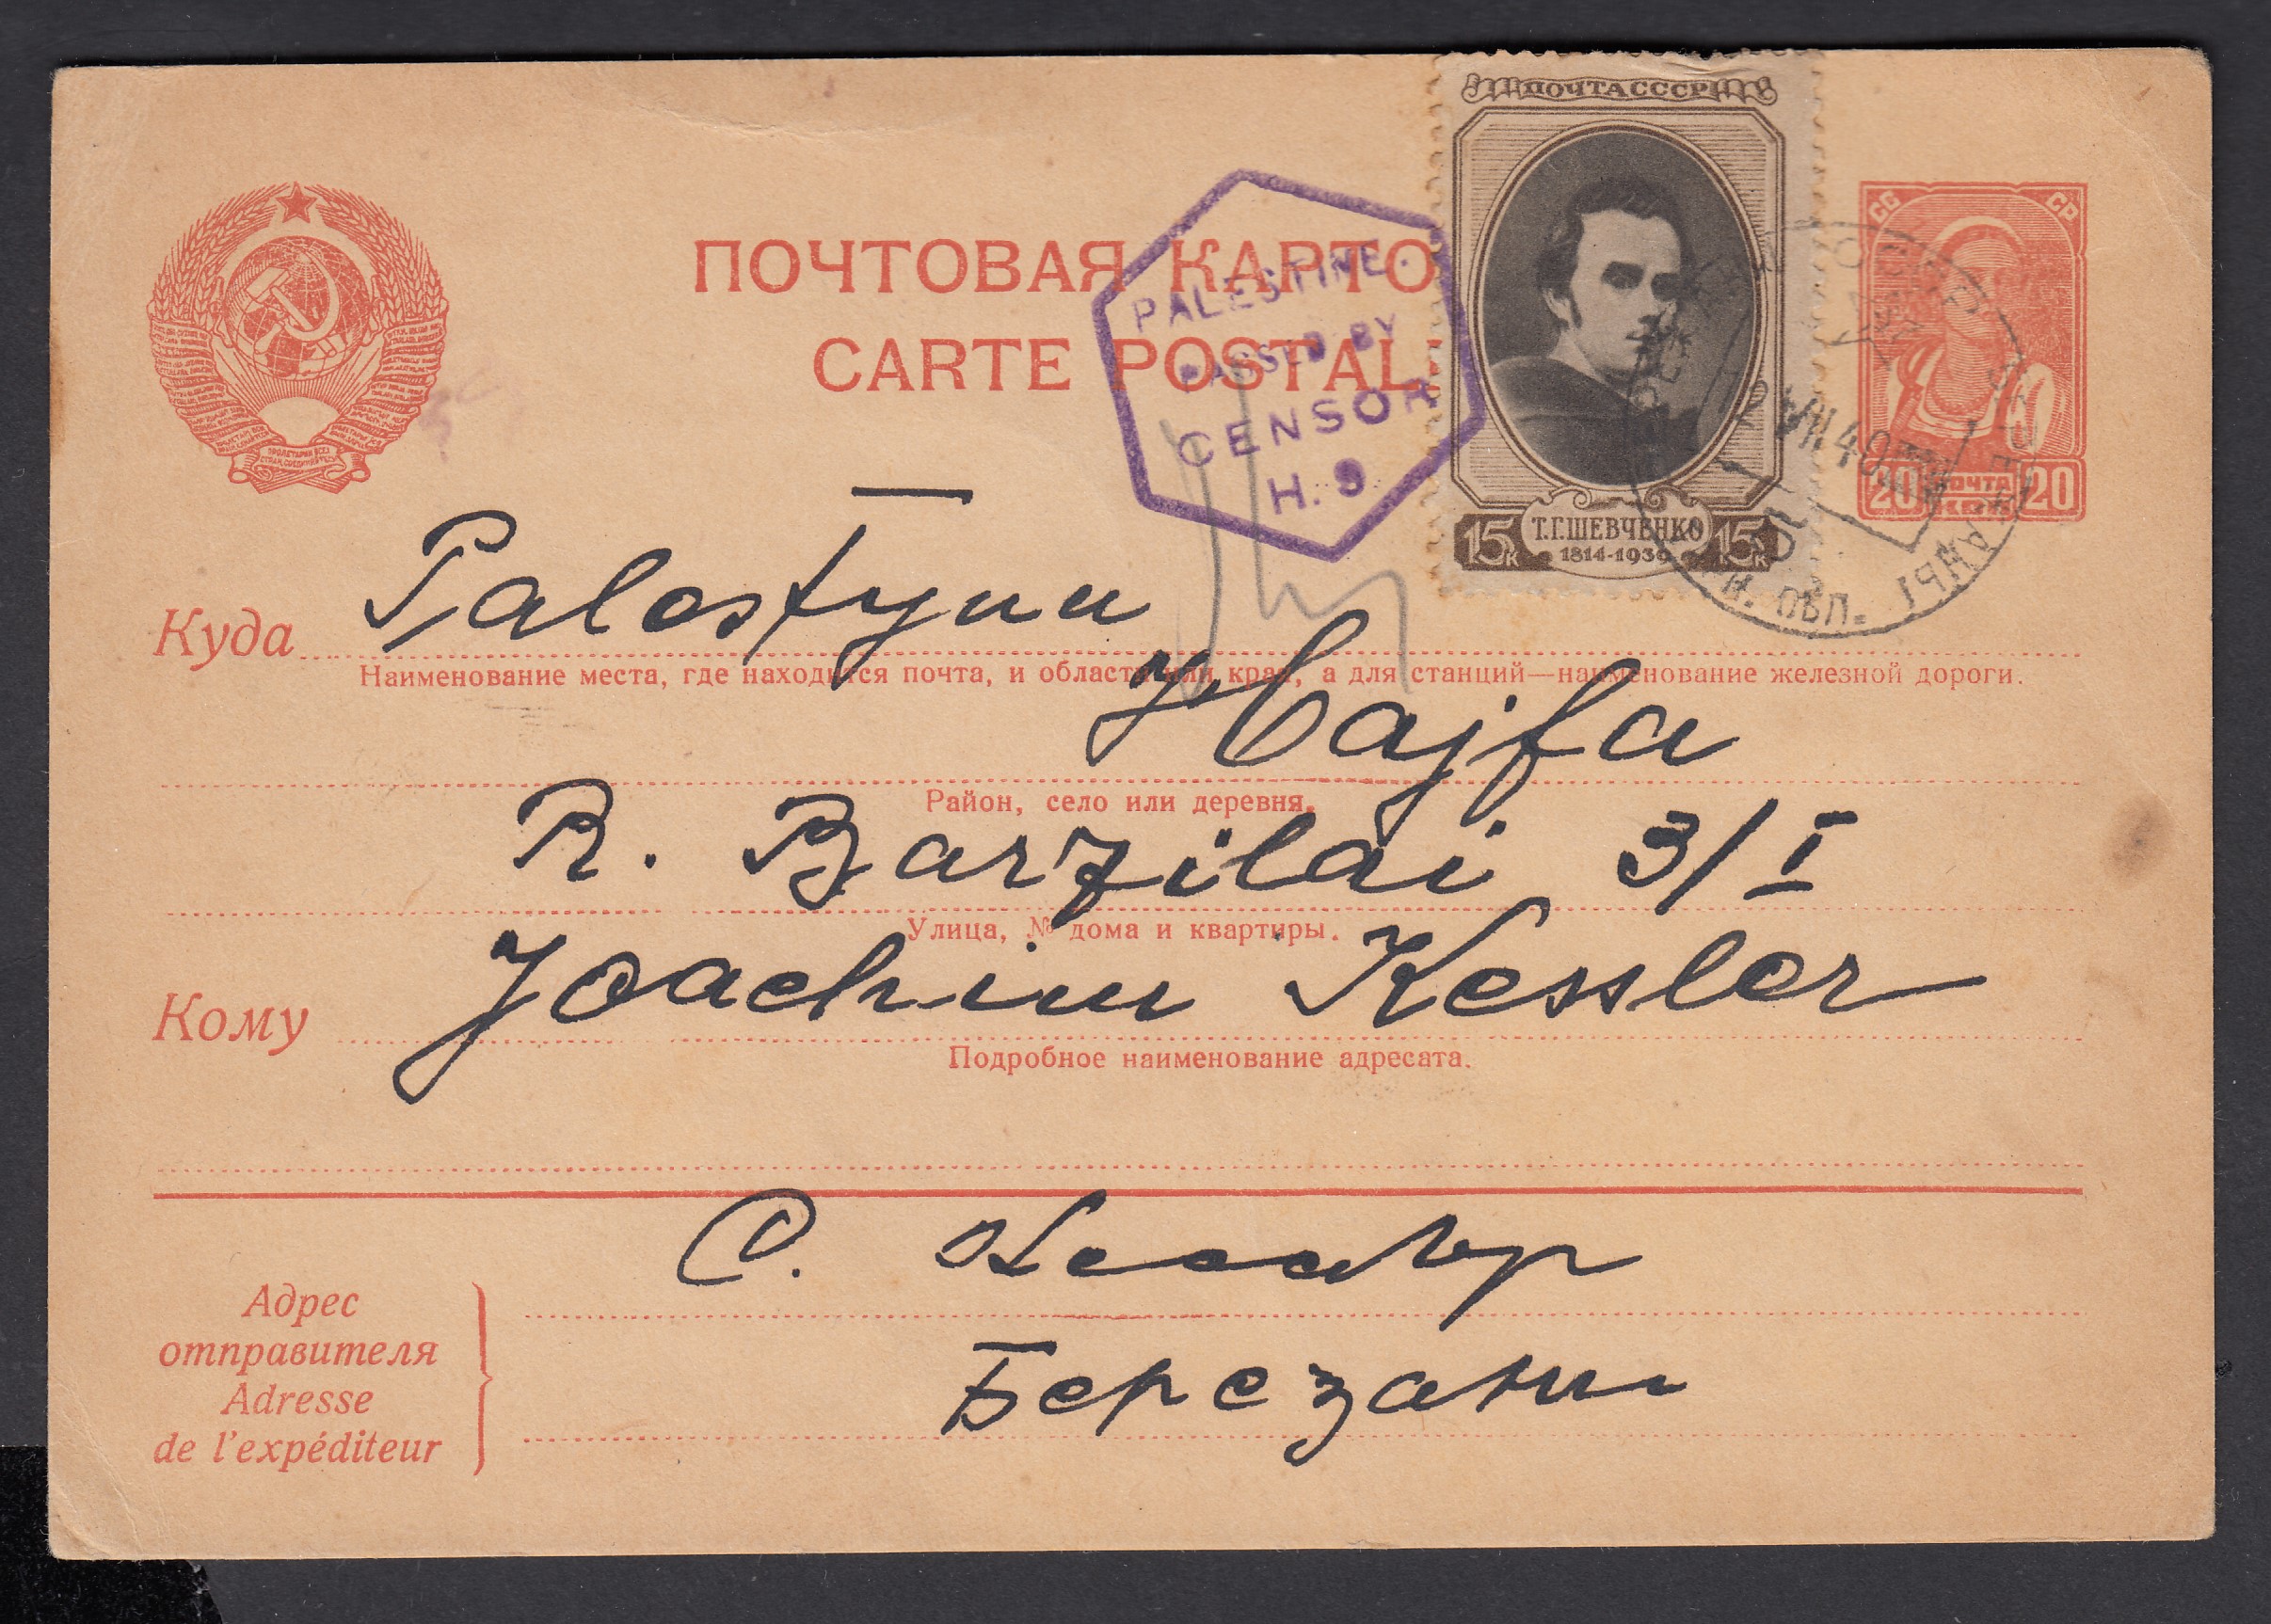 ПОЧТА СССР
ПОЧТОВАЯ КАРТО
CARTE POSTAL
PALESTINE.
PASSED BY
CENSOR
H. 9
СС СР
ПРОЛЕТАРИИ ВСЕХ
СТРАН, СОЕДИНЯЙТЕСЬ!
Т.Г.ШЕВЧЕНКО
1814-1939
15 К 15 К
20 ПОЧТА 20
КОП.
VII 40
БЕРЕЖАНЫ
ОБЛ.
Куда Palestyna
Наименование места, где находится почта, и области или края, а для станций—наименование железной дороги.
Hajfa
Район, село или деревня.
R. Barzilai 3/I
Улица, № дома и квартиры.
Кому Joachim Kessler
Подробное наименование адресата.
С. Кесслер
Адрес
отправителя
Adresse
de l'expéditeur
Березани